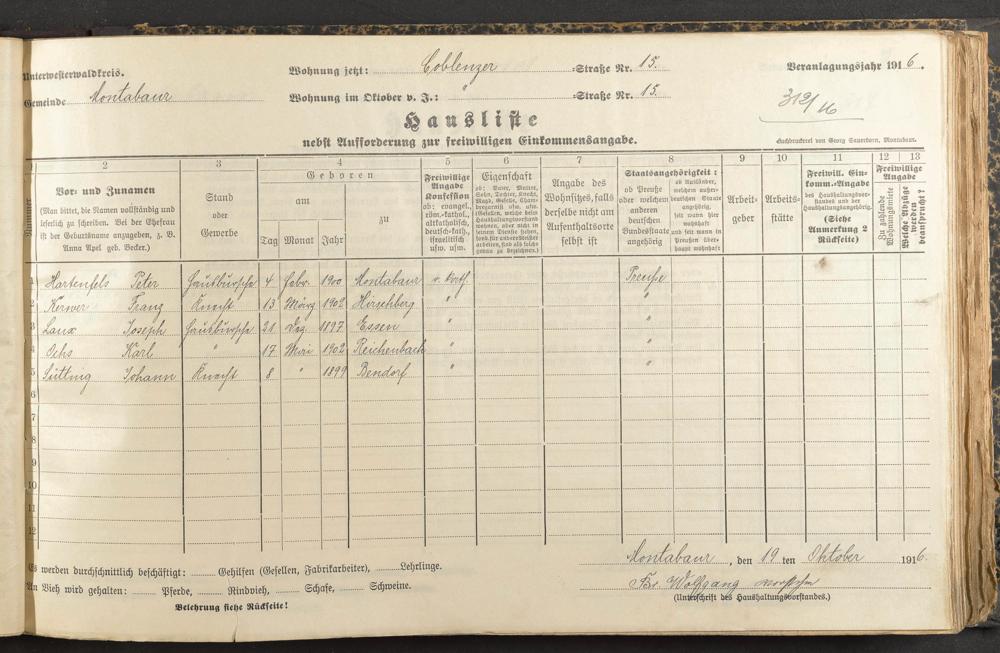 Unterwesterwaldkreis.
Wohnung jetzt: Coblenzer -Straße Nr. 15.
Veranlagungsjahr 1916.
Gemeinde Montabaur
Wohnung im Oktober v. J.: " -Straße Nr. 15.
312/16
Hausliste
nebst Aufforderung zur freiwilligen Einkommensangabe.
Buchdruckerei von Georg Sauerborn, Montabaur.
1 2 3 4 5 6 7 8 9 10 11 12 13
Nummer
Vor- und Zunamen
(Man bittet, die Namen vollständig und
leserlich zu schreiben. Bei der Ehefrau
ist der Geburtsname anzugeben, z. B.
Anna Apel geb. Becker.)
Stand
oder
Gewerbe
Geboren
am
zu
Tag Monat Jahr
Freiwillige
Angabe
Konfession
ob: evangel.,
röm.-kathol.,
altkatholisch,
deutsch-kath.,
israelitisch
usw. usw.
Eigenschaft
ob: Vater, Mutter,
Sohn, Tochter, Knecht,
Magd, Geselle, Cham-
bregarnist usw. usw.
(Gesellen, welche beim
Haushaltungsvorstand
wohnen, aber nicht in
seinem Dienste stehen,
sind als solche
genau zu bezeichnen.)
Angabe des
Wohnsitzes, falls
derselbe nicht am
Aufenthaltsorte
selbst ist
Staatsangehörigkeit:
ob Preuße
oder welchem
anderen
deutschen
Bundesstaate
angehörig
ob Ausländer,
welchem außer-
deutschen Staate
angehörig,
seit wann hier
wohnhaft
und seit wann in
Preußen über-
haupt wohnhaft
Arbeit-
geber
Arbeits-
stätte
Freiwill. Ein-
komm.-Angabe
des Haushaltungsvor-
standes und der
Haushaltungsangehörig.
(Siehe
Anmerkung 2
Rückseite)
Freiwillige
Angabe
Zu zahlende
Wohnungsmiete
Welche Abzüge
werden
beansprucht?
1 Hartenfels Peter Hausbursche 4 Febr. 1900 Montabaur r. kath. Preuße
2 Kerwer Franz Knecht 13 März 1902 Hirschberg " "
3 Laux Joseph Hausbursche 21 Dez. 1897 Essen " "
4 Ochs Karl " 17 1902 Reichenbach " "
5 Johann Knecht 8 " 1899 Bendorf " "
6
7
8
9
10
11
12
Es werden durchschnittlich beschäftigt: Gehilfen (Gesellen, Fabrikarbeiter), Lehrlinge.
An Vieh wird gehalten: Pferde, Rindvieh, Schafe, Schweine.
Belehrung siehe Rückseite!
Montabaur, den 19 ten Oktober 1916.
Br. Wolfgang
(Unterschrift des Haushaltungsvorstandes.)